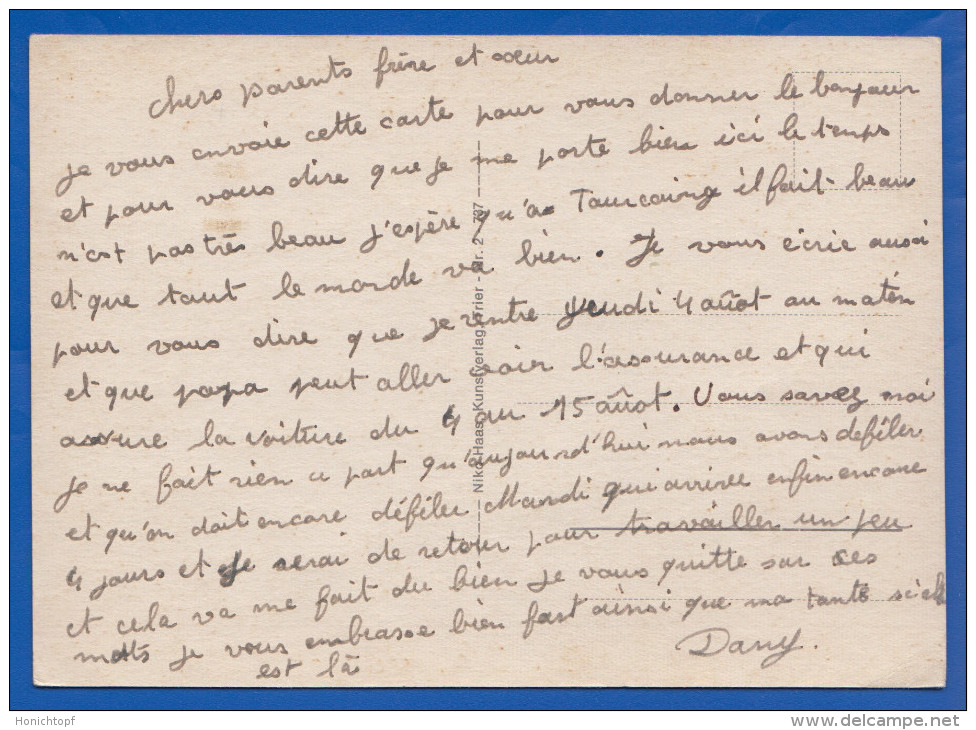 Chers parents frère et sœur
je vous envoie cette carte pour vous donner le bonjour
et pour vous dire que je me porte bien ici le temps
n'est pas très beau j'espère qu'a Tourcoing il fait beau
et que tout le monde va bien. Je vous écrie aussi
pour vous dire que je rentre jeudi 4 août au matin
et que papa peut aller voir l'assurance et qui
assure la voiture du 4 au 15 août. Vous savez moi
je ne fait rien a part qu'aujourd'hui nous avons défiler
et qu'on doit encore défiler Mardi qui arrive enfin encore
4 jours et je serai de retour pour travailler un peu
et cela va me fait du bien je vous quitte sur ces
mots je vous embrasse bien fort ainsi que ma tante si elle
est là
Dany.
Niko Haas, Kunstverlag, Trier - Nr. 2 - 787
Honichtopf
www.delcampe.net